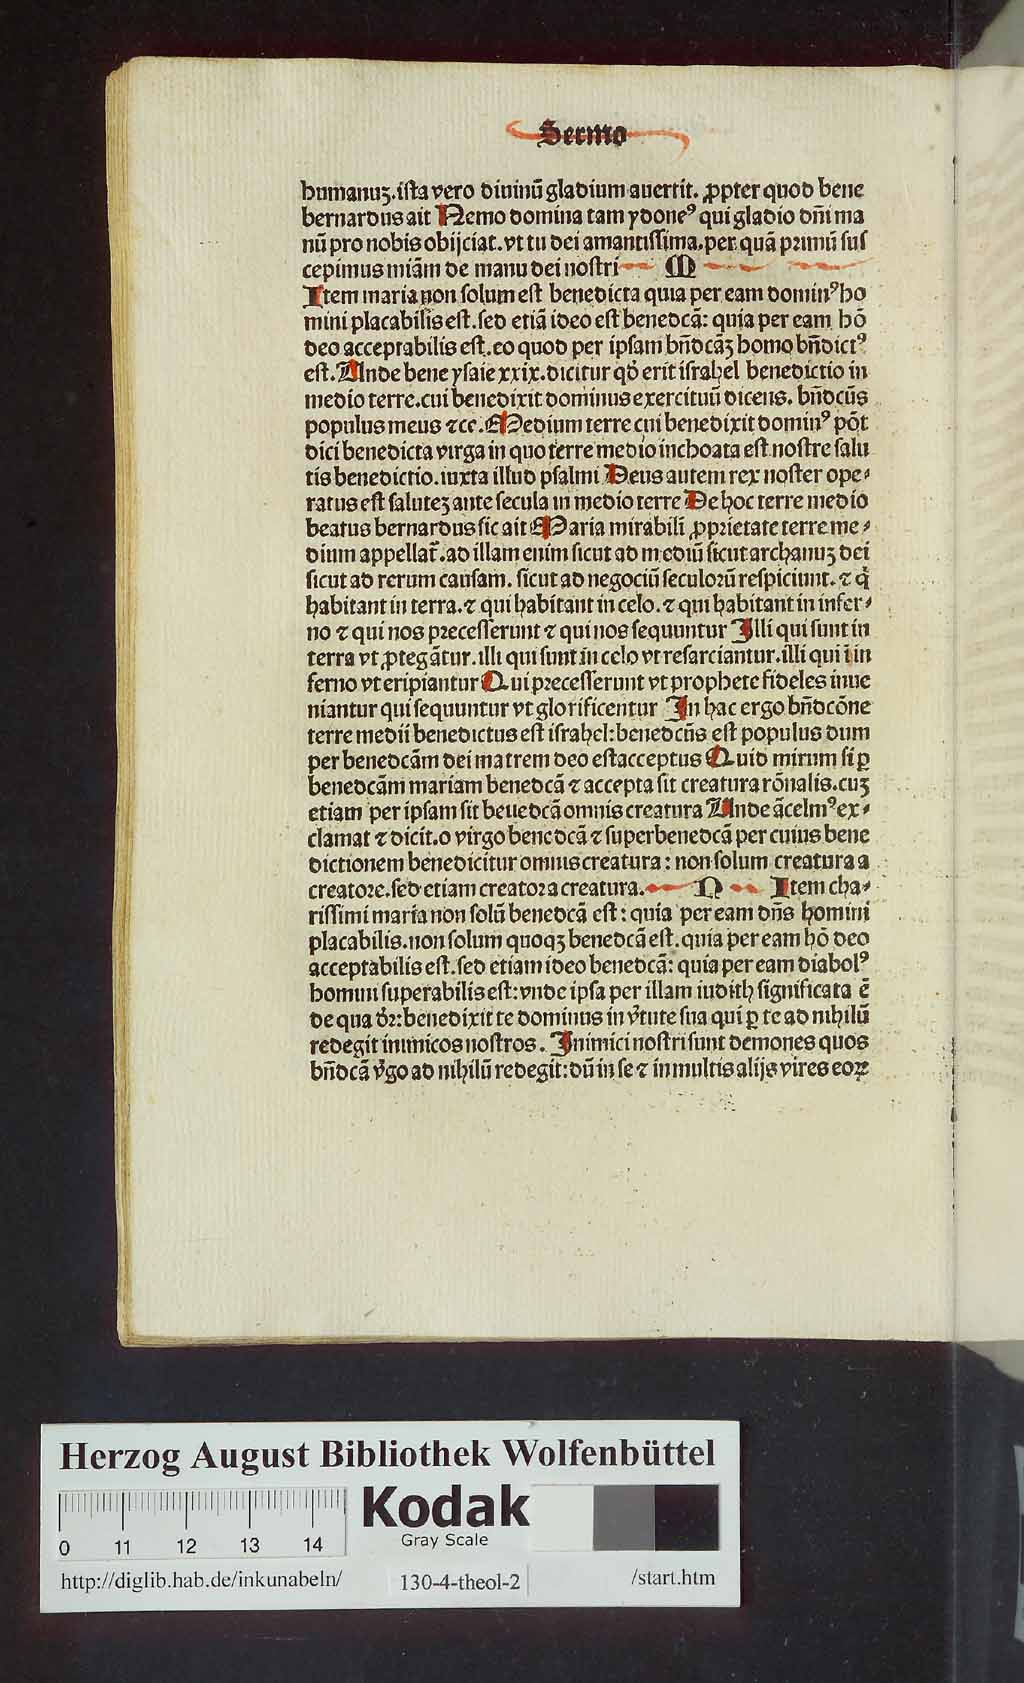 Sermo
humanuʒ. ista vero diuinū gladium auertit. ꝓpter quod bene
bernardus ait Nemo domina tam ydoneꝰ qui gladio dn̄i ma
nū pro nobis obijciat. vt tu dei amantissima. per quā primū sus
cepimus miām de manu dei nostri M
Item maria non solum est benedicta quia per eam dominꝰ ho
mini placabilis est. sed etiā ideo est benedcā: quia per eam hō
deo acceptabilis est. eo quod per ipsam bn̄dcāʒ homo bn̄dictꝰ
est. Vnde bene ysaie xxix. dicitur qd̓ erit israhel benedictio in
medio terre. cui benedixit dominus exercituū dicens. bn̄dcūs
populus meus ⁊cc. Medium terre cui benedixit dominꝰ pōt
dici benedicta virga in quo terre medio inchoata est nostre salu
tis benedictio. iuxta illud psalmi Deus autem rex noster ope⸗
ratus est saluteʒ ante secula in medio terre De hoc terre medio
beatus bernardus sic ait Maria mirabili ꝓprietate terre me⸗
dium appellat᷑. ad illam enim sicut ad mediū sicut archanuʒ dei
sicut ad rerum causam. sicut ad negociū seculorū respiciunt. ⁊ qͥ
habitant in terra. ⁊ qui habitant in celo. ⁊ qui habitant in infer⸗
no ⁊ qui nos precesserunt ⁊ qui nos sequuntur Illi qui sunt in
terra vt ꝓtegātur. illi qui sunt in celo vt resarciantur. illi qui ī in
ferno vt eripiantur Qui precesserunt vt prophete fideles inue
niantur qui sequuntur vt glorificentur In hac ergo bn̄dcōne
terre medii benedictus est israhel: benedcūs est populus dum
per benedcām dei matrem deo est acceptus Quid mirum si ꝑ
benedcām mariam benedcā ⁊ accepta sit creatura rōnalis. cuʒ
etiam per ipsam sit beuedcā omnis creatura Vnde ācelmꝰ ex⸗
clamat ⁊ dicit. o virgo benedcā ⁊ superbenedcā per cuius bene
dictionem benedicitur omnis creatura: non solum creatura a
creatore. sed etiam creator a creatura. N Item cha⸗
rissimi maria non solū benedcā est: quia per eam dn̄s homini
placabilis. non solum quoqʒ benedcā est. quia per eam hō deo
acceptabilis est. sed etiam ideo benedcā: quia per eam diabolꝰ
homini superabilis est: vnde ipsa per illam iudith significata ē
de qua dr̄: benedixit te dominus in v̓tute sua qui ꝑ te ad nihilū
redegit inimicos nostros. Inimici nostri sunt demones quos
bn̄dcā v̓go ad nihilū redegit: dū in se ⁊ in multis alijs vires eoꝝ
Herzog August Bibliothek Wolfenbüttel
Kodak
Gray Scale
0 11 12 13 14
http://diglib.hab.de/inkunabeln/ 130-4-theol-2 /start.htm